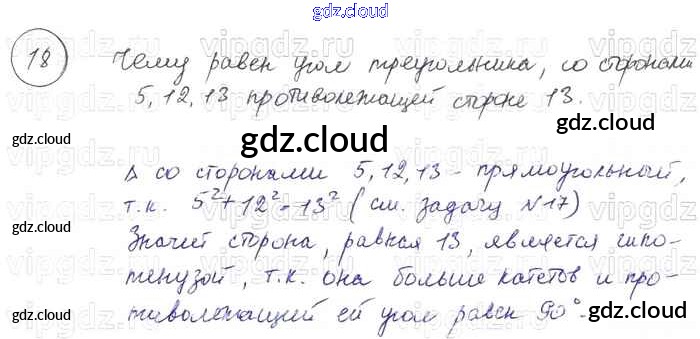 gdz.cloud
18 Чему равен угол треугольника, со сторонами
5, 12, 13 противолежащей стороне 13.
gdz.cloud
gdz.cloud
gdz.cloud
Δ со сторонами 5, 12, 13 - прямоугольный,
т.к. 5²+12²-13² (см. задачу №17)
Значит сторона, равная 13, является гипо-
тенузой, т.к. она больше катетов и про-
тиволежащий ей угол равен 90°.
gdz.cloud
gdz.cloud